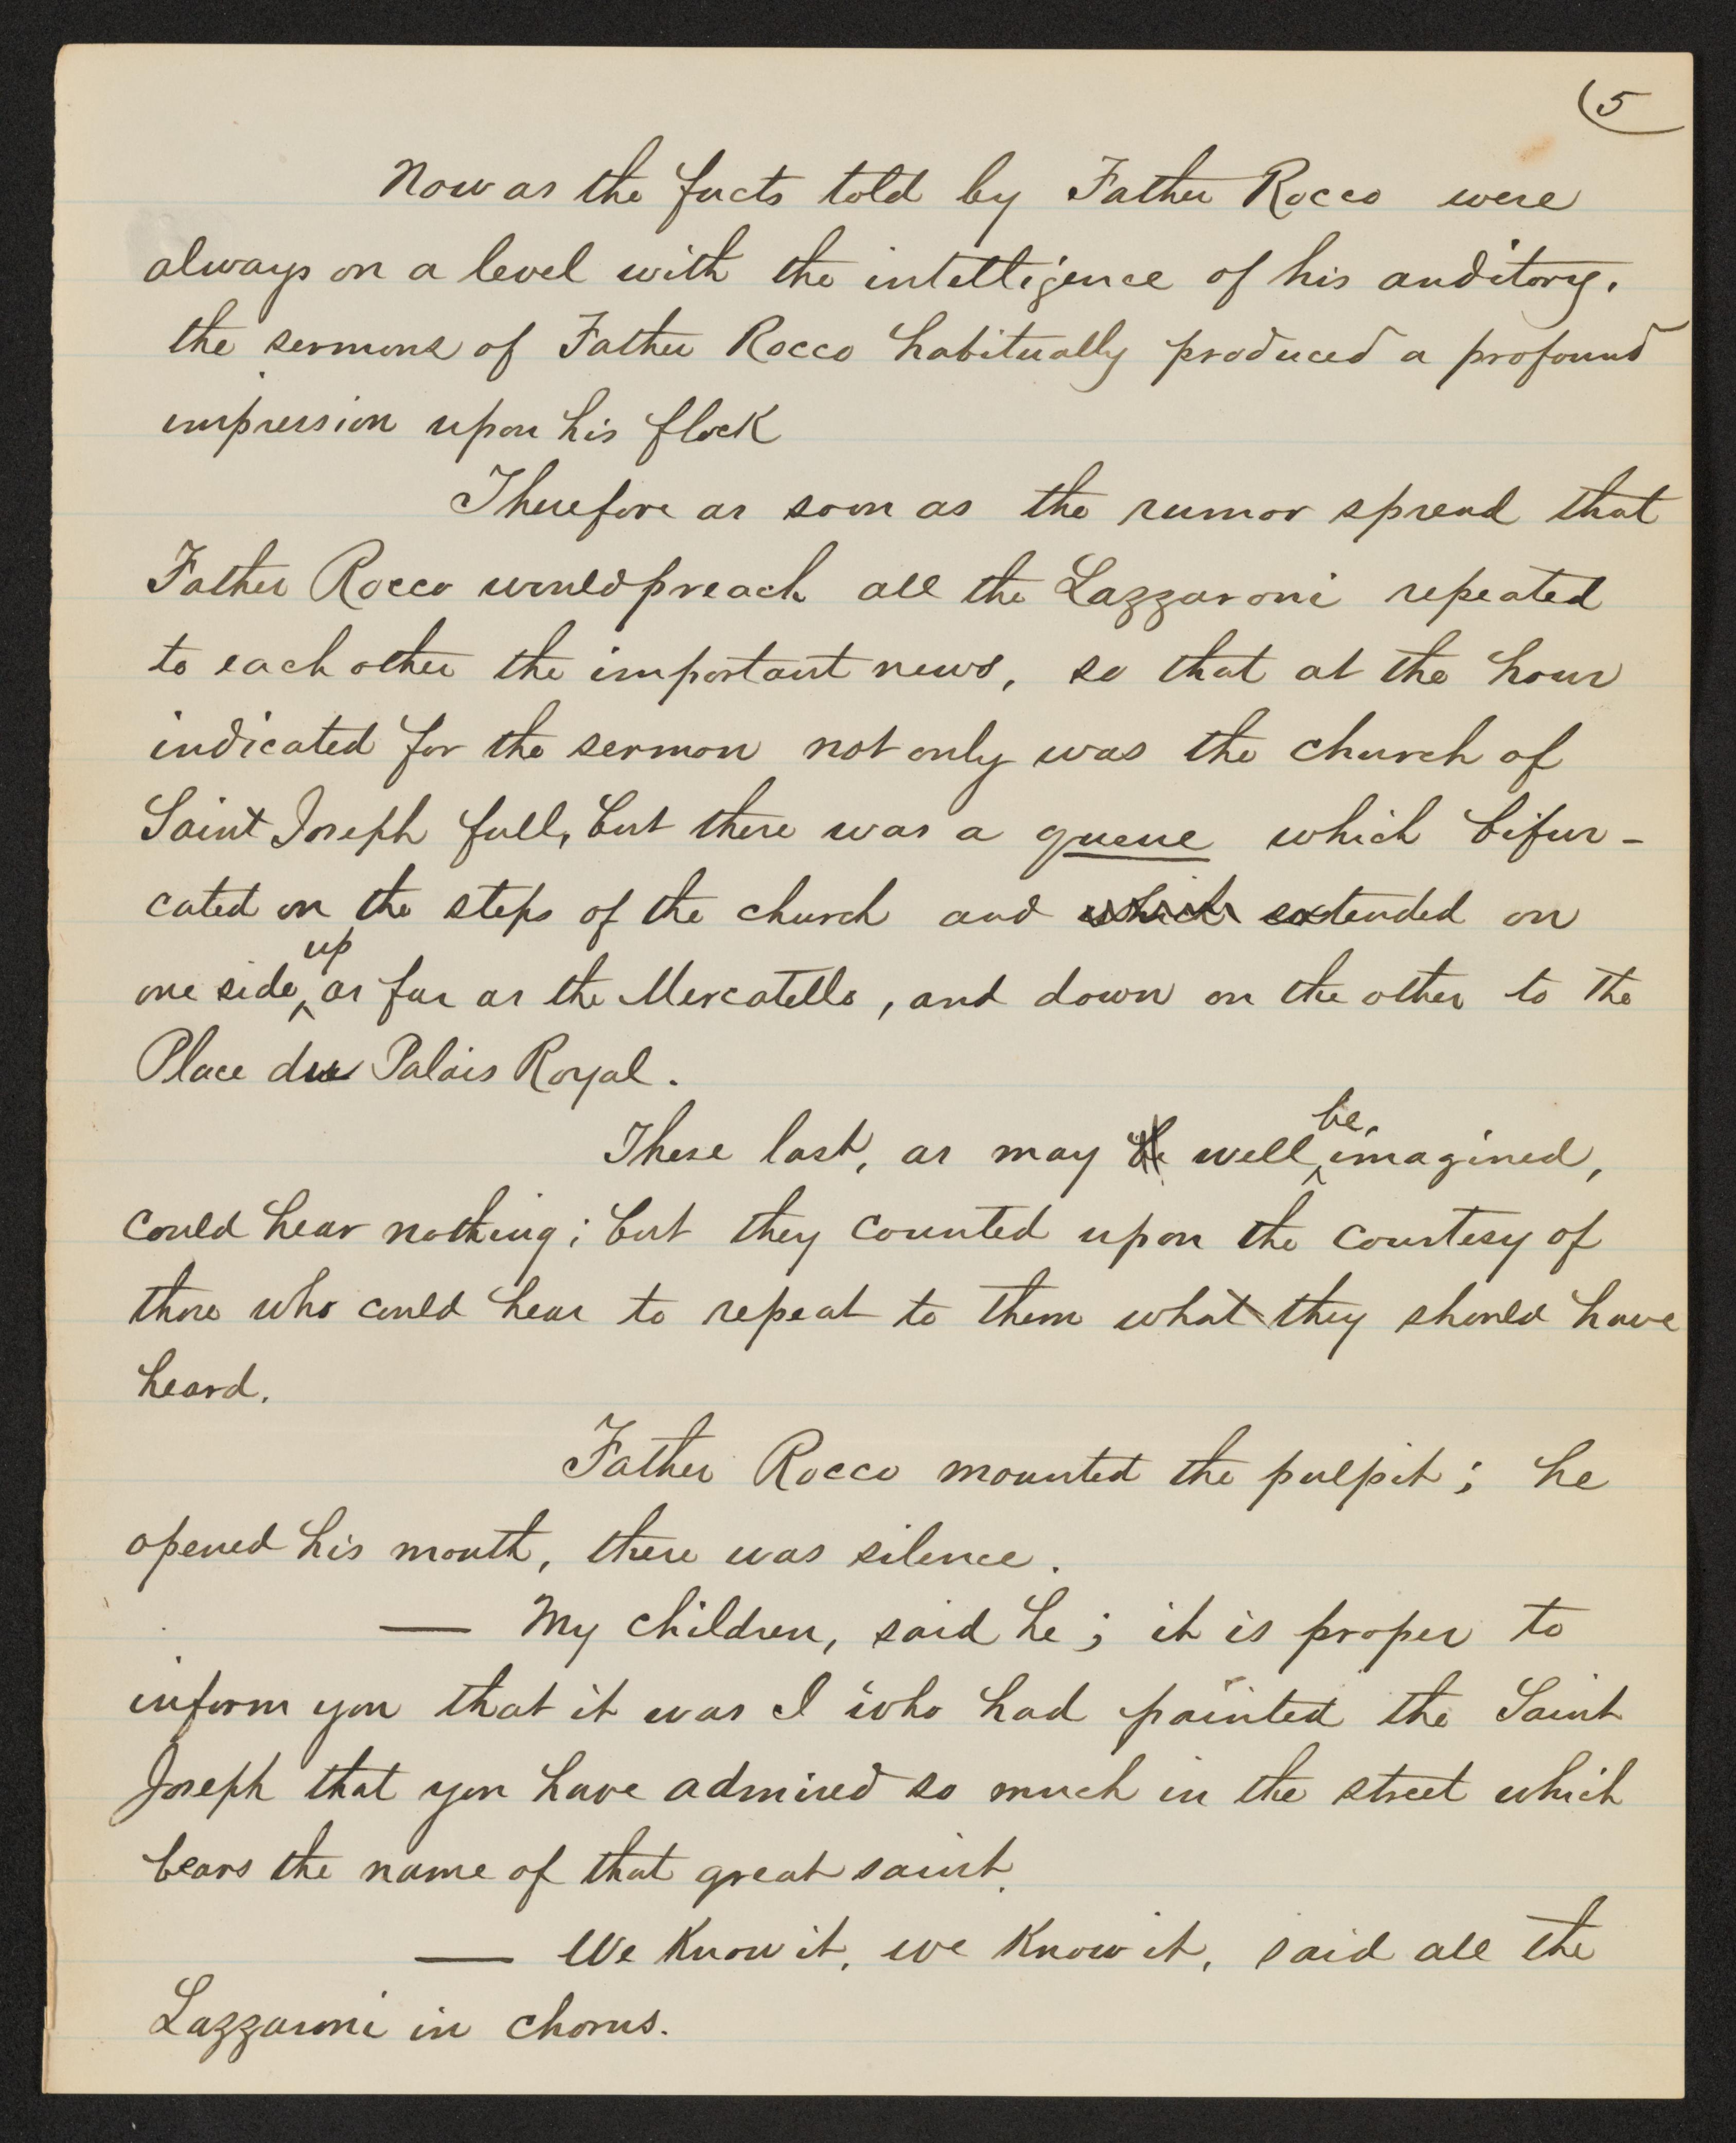 (5
Now as the facts told by Father Rocco were
always on a level with the intelligence of his auditory,
the sermons of Father Rocco habitually produced a profound
impression upon his flock
Therefore as soon as the rumor spread that
Father Rocco would preach all the Lazzaroni repeated
to each other the important news, so that at the hour
indicated for the sermon not only was the church of
Saint Joseph full, but there was a queue which bifur-
cated on the steps of the church and which extended on
one side, up as far as the Mercatello, and down on the other to the
Place du Palais Royal.
These last, as may be well be, imagined,
could hear nothing; but they counted upon the courtesy of
those who could hear to repeat to them what they should have
heard.
Father Rocco mounted the pulpit; he
opened his mouth, there was silence.
— My children, said he; it is proper to
inform you that it was I who had painted the Saint
Joseph that you have admired so much in the street which
bears the name of that great saint.
— We know it, we know it, said all the
Lazzaroni in chorus.